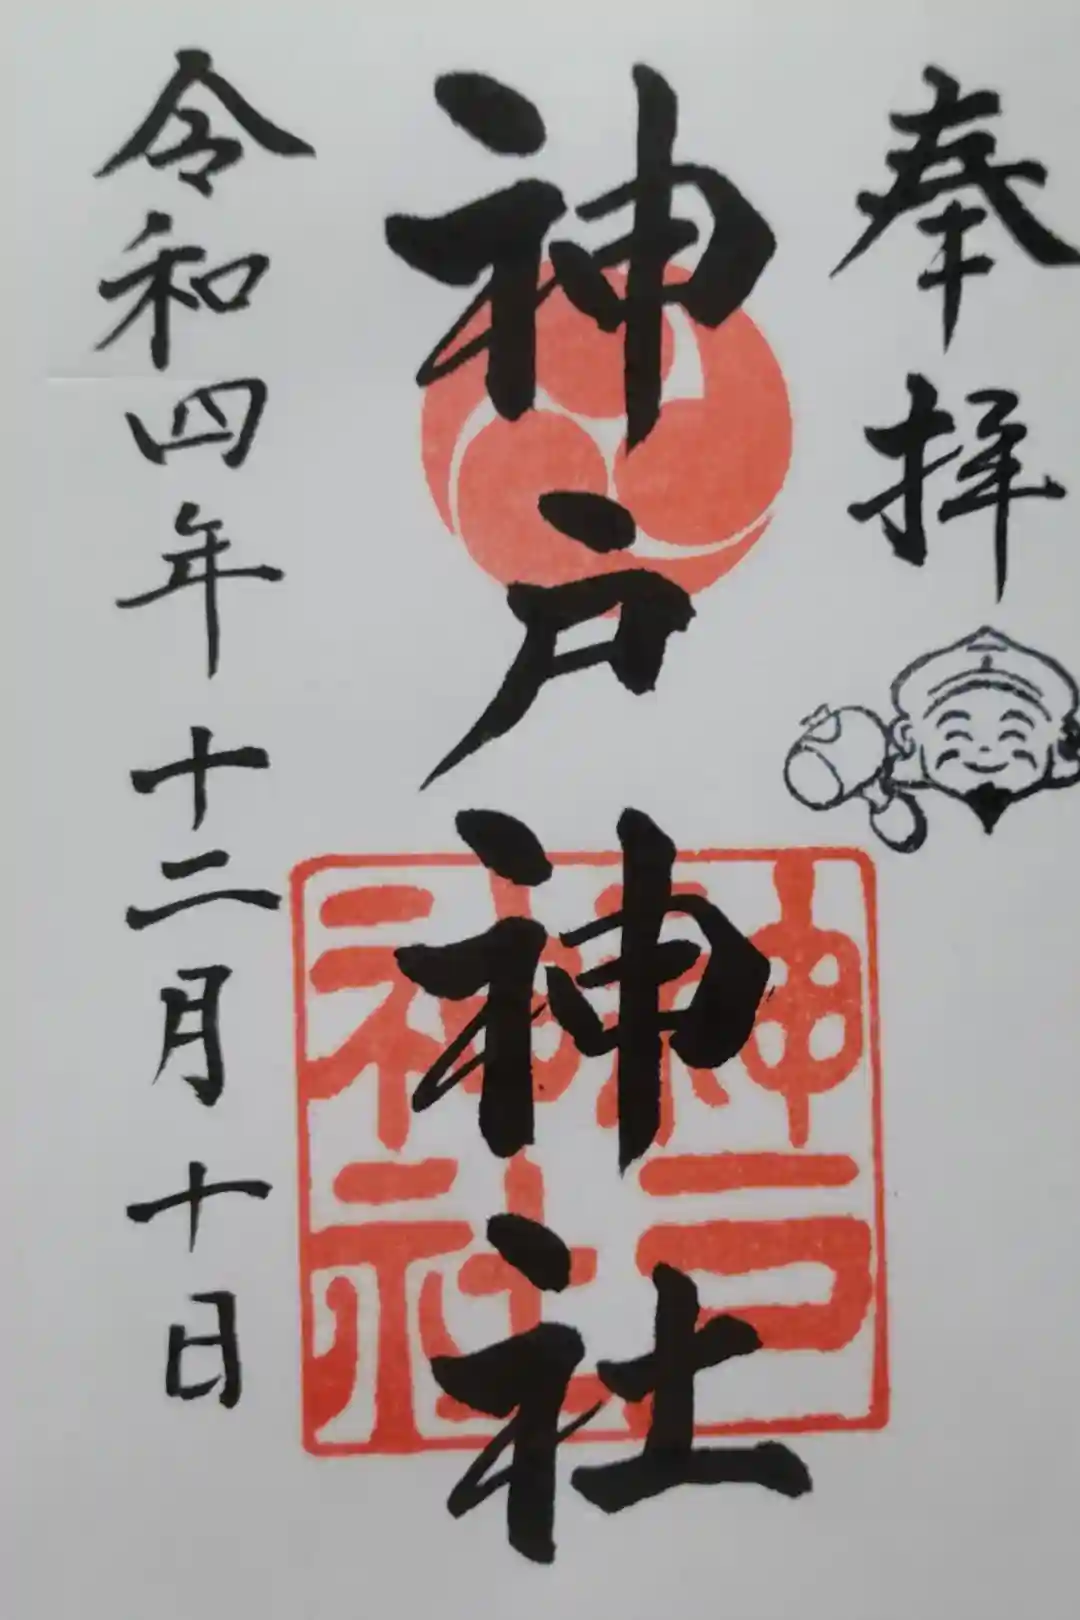 奉拝
神戸神社
神戸
神社
令和四年十二月十日